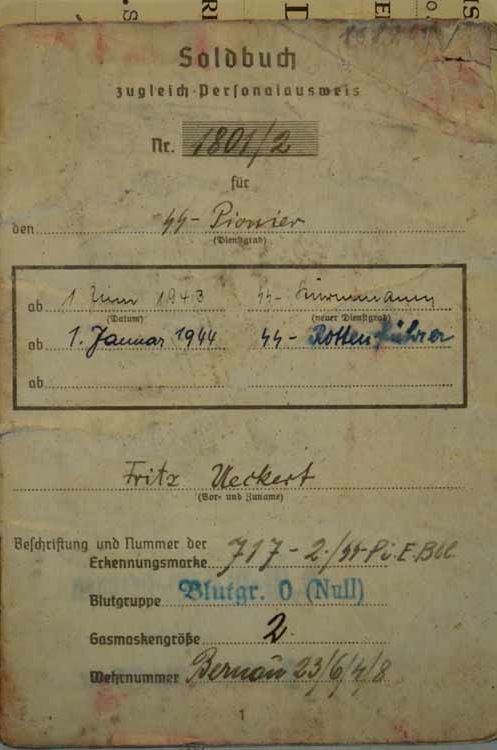 Soldbuch
zugleich Personalausweis
Nr. 1801/2
für
den ϟϟ-Pionier
(Dienstgrad)
ab 1. Juni 1943 ϟϟ-Sturmmann
(Datum) (neuer Dienstgrad)
ab 1. Januar 1944 ϟϟ-Rottenführer
ab
Fritz Ueckert
(Vor- und Zuname)
Beschriftung und Nummer der
Erkennungsmarke 717-2./ϟϟ-Pi.E.Btl
Blutgruppe Blutgr. O (Null)
Gasmaskengröße 2.
Wehrnummer Bernau 23/6/4/8
1